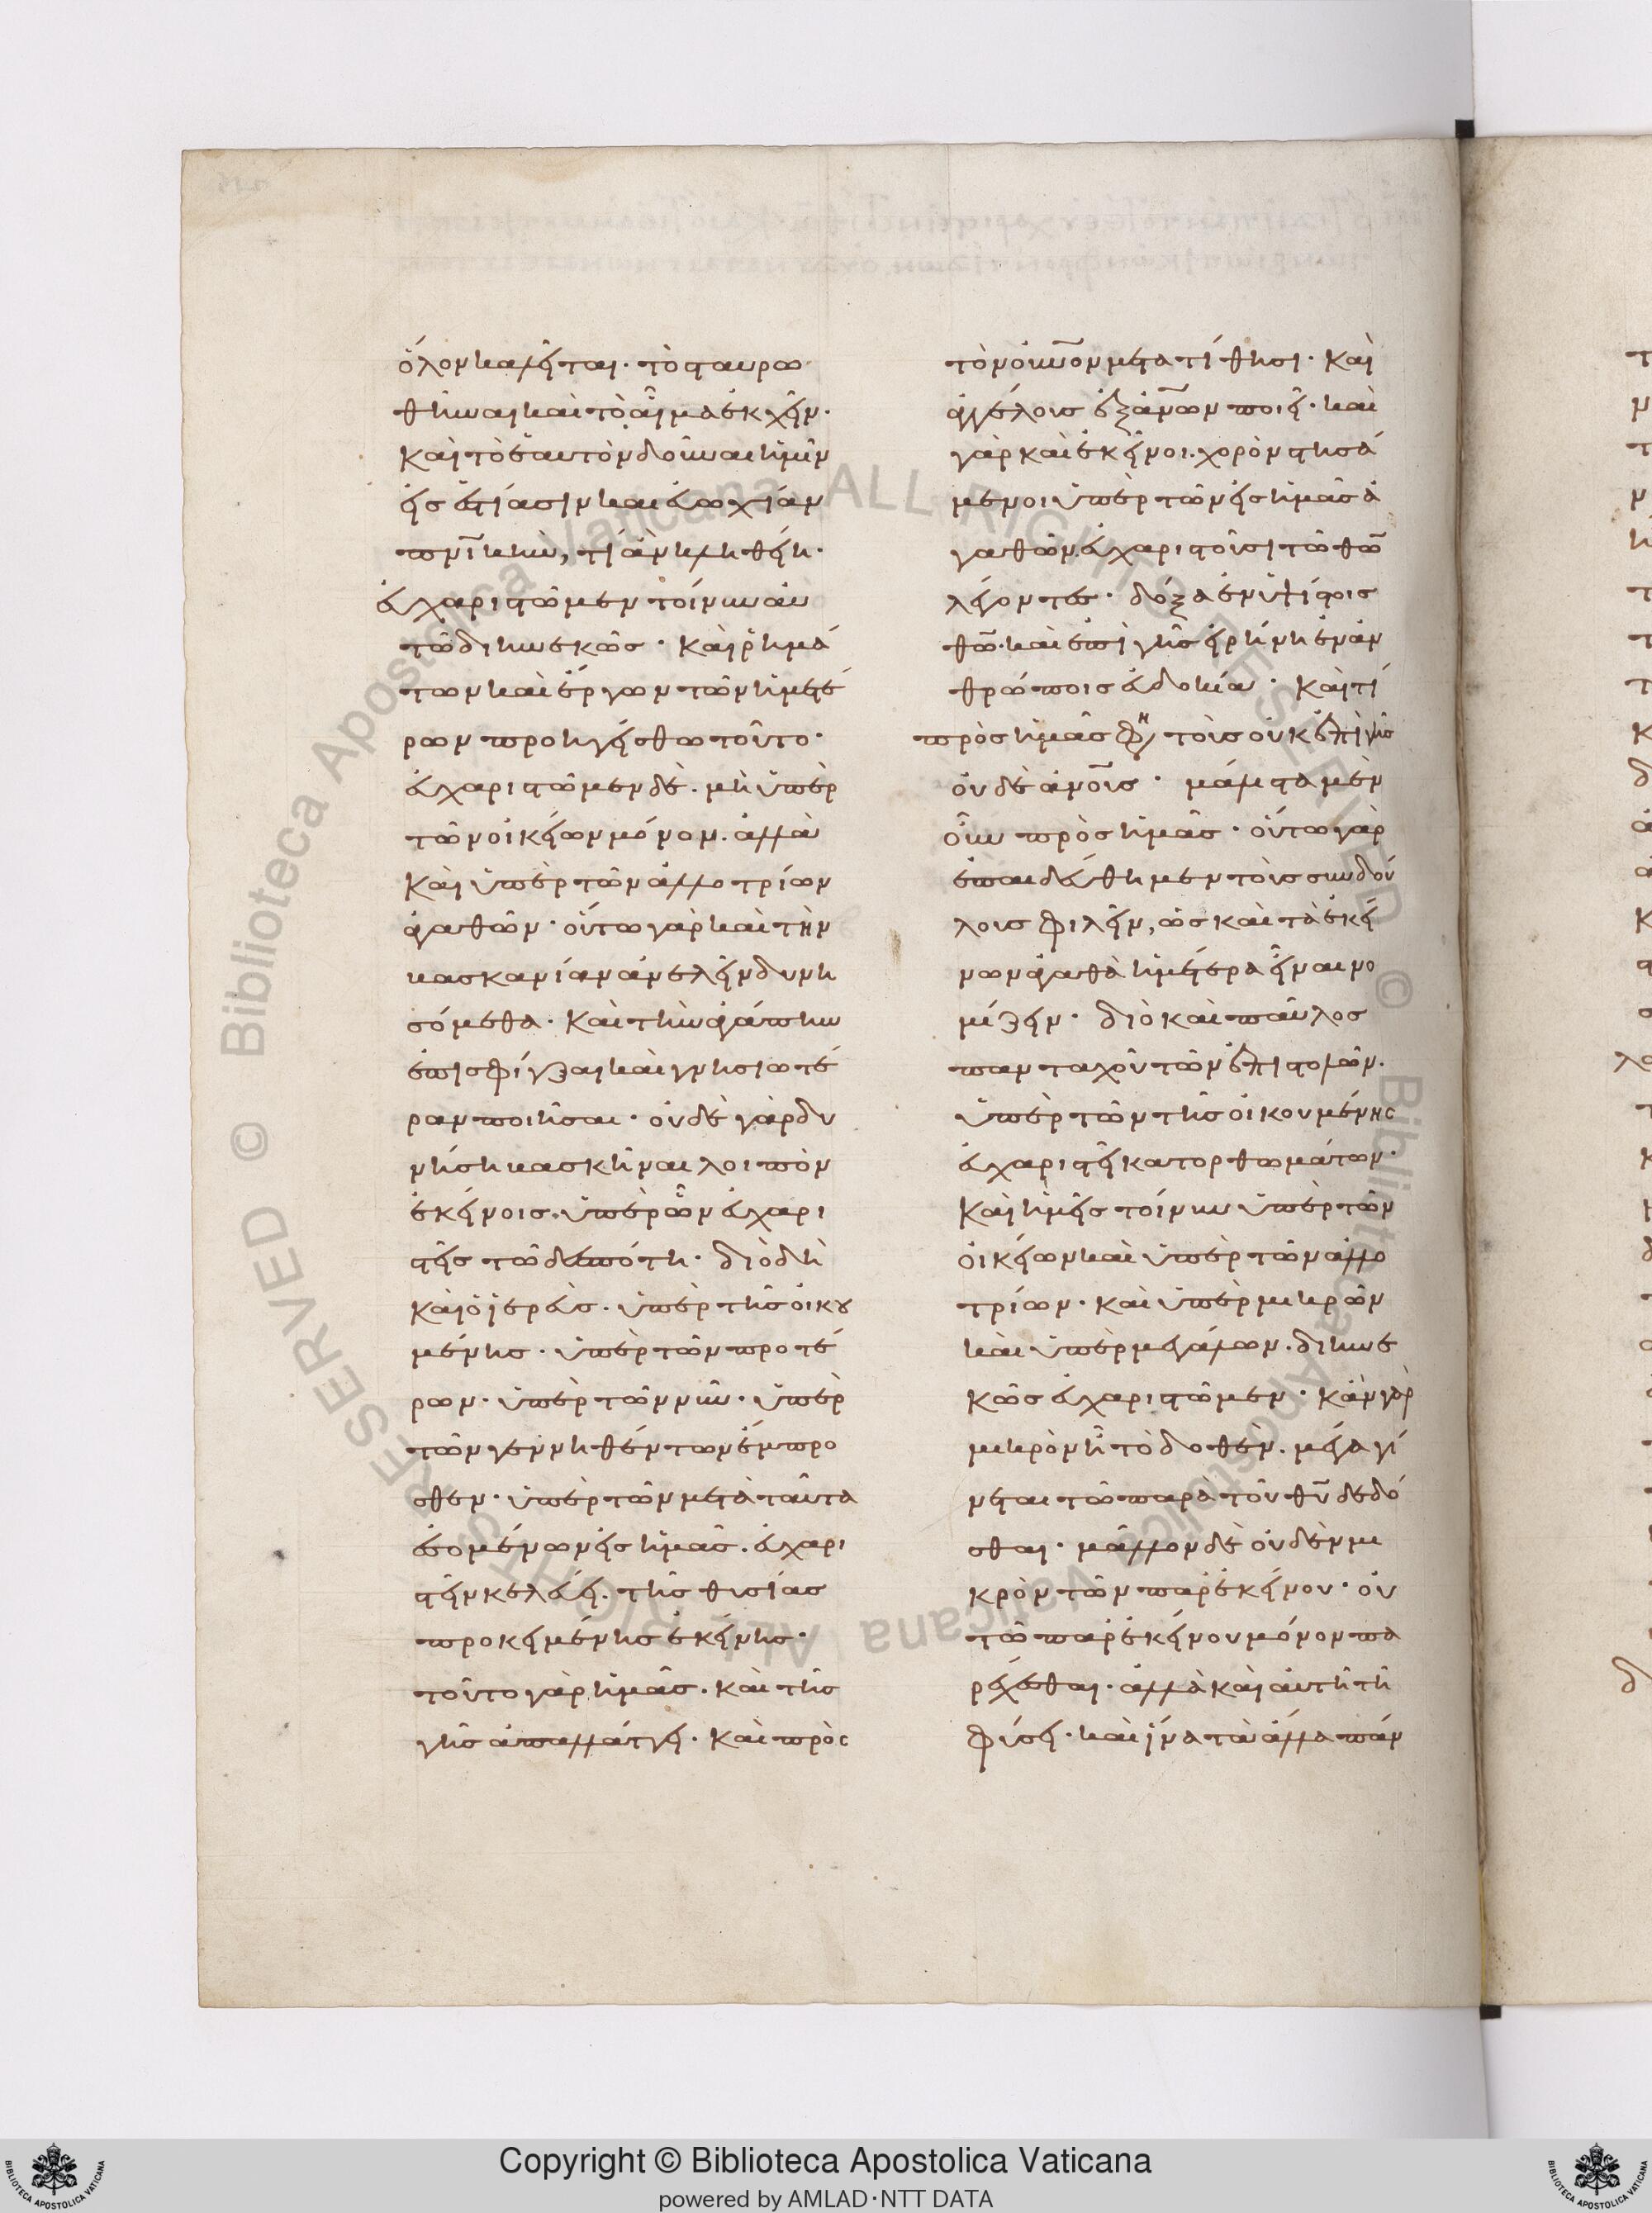 ὅλον καλεῖται· τὸ σταυρω
θῆναι καὶ τὸ αἷμα ἐκχεῖν·
καὶ τὸ ἑαυτὸν δοῦναι ἡμῖν
εἰς ἑστίασιν καὶ εὐωχίαν
πν̅ικὴν, τί ἂν κληθείη·
εὐχαριστῶμεν τοίνυν αὐ
τῶ διηνεκῶς· καὶ ῥημά
των καὶ ἔργων τῶν ἡμετέ
ρων προηγείσθω τοῦτο·
εὐχαριστῶμεν δὲ. μὴ ὑπὲρ
τῶν οἰκείων μόνον. ἀλλὰ
καὶ ὑπὲρ τῶν ἀλλοτρίων
ἀγαθῶν· οὕτω γὰρ καὶ τὴν
βασκανίαν ἀνελεῖν δυνη
σόμεθα· καὶ τὴν ἀγάπην
ἐπισφίγξαι καὶ γνησιωτέ
ραν ποιῆσαι· οὐδὲ γὰρ δυ
νήσῃ βασκῆναι λοιπὸν
ἐκείνοις. ὑπὲρ ὧν εὐχαρι
στεῖς τῶ δεσπότη· διὸ δὴ
καὶ ὁ ἱερεὺς. ὑπὲρ τῆς οἰκου
μένης· ὑπὲρ τῶν προτέ
ρων· ὑπὲρ τῶν νῦν· ὑπὲρ
τῶν γεννηθέντων ἔμπρο
σθεν· ὑπὲρ τῶν μετὰ ταῦτα
ἐσομένων εἰς ἡμᾶς. εὐχαρι
στεῖν κελεύει. τῆς θυσίας
προκειμένης ἐκείνης·
τοῦτο γὰρ ἡμᾶς. καὶ τῆς
γῆς ἀπαλλάττει· καὶ πρὸς
τὸν οὐνο̅ν μετατίθησι· καὶ
ἀγγέλους ἐξ ἀν̅ων ποιεῖ· καὶ
γὰρ καὶ ἐκεῖνοι. χορὸν στησά
μενοι ὑπὲρ τῶν εἰς ἡμᾶς ἀ
γαθῶν. εὐχαριστοῦσι τῶ θω̅
λέγοντες· δόξα ἐν ὑψίστοις
θω̅· καὶ ἐπὶ γῆς εἰρήνη ἐν ἀν
θρώποις εὐδοκία· καὶ τί
πρὸς ἡμᾶς φη τοὺς οὐκ ἐπὶ γῆς
οὐδὲ ἀνο̅υς· μάλιστα μὲν
οὖν πρὸς ἡμᾶς· οὕτω γὰρ
ἐπαιδεύθημεν τοὺς συνδού
λους φιλεῖν, ὡς καὶ τὰ ἐκεί
νων ἀγαθὰ ἡμέτερα εἶναι νο
μίζειν· διὸ καὶ παῦλος
πανταχοῦ τῶν ἐπιστολῶν.
ὑπὲρ τῶν τῆς οἰκουμένης
εὐχαριστεῖ κατορθωμάτων·
καὶ ἡμεῖς τοίνυν ὑπὲρ τῶν
οἰκείων καὶ ὑπὲρ τῶν ἀλλο
τρίων· καὶ ὑπὲρ μικρῶν
καὶ ὑπὲρ μεγάλων. διηνε
κῶς εὐχαριστῶμεν· κἂν γὰρ
μικρὸν ἦ τὸ δοθὲν. μέγα γί
νεται τῶ παρὰ τοῦ θυ̅ δεδό
σθαι· μᾶλλον δὲ οὐδὲν μι
κρὸν τῶν παρ' ἐκείνου· οὐ
τῶ παρ' ἐκείνου μόνον πα
ρέχεσθαι. ἀλλὰ καὶ αὐτῆ τῆ
φύσει· καὶ ἵνα τὰ ἄλλα πάν
Copyright © Biblioteca Apostolica Vaticana
powered by AMLAD·NTT DATA